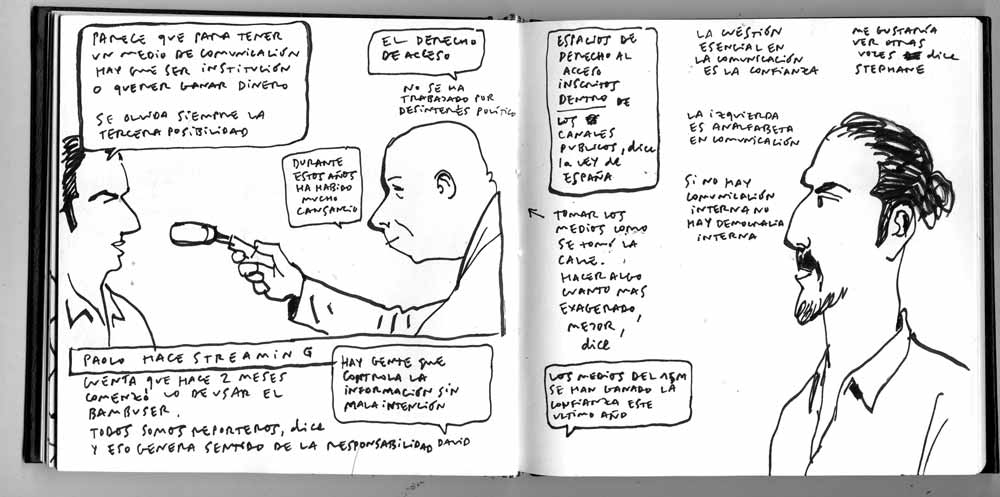 PARECE QUE PARA TENER
UN MEDIO DE COMUNICACIÓN
HAY QUE SER INSTITUCIÓN
O QUERER GANAR DINERO
SE OLVIDA SIEMPRE LA
TERCERA POSIBILIDAD
EL DERECHO
DE ACCESO
NO SE HA
TRABAJADO POR
DESINTERÉS POLÍTICO
DURANTE
ESTOS AÑOS
HA HABIDO
MUCHO
CANSANCIO
PAOLO HACE STREAMING
CUENTA QUE HACE 2 MESES
COMENZÓ LO DE USAR EL
BAMBUSER.
TODOS SOMOS REPORTEROS, dice
Y ESO GENERA SENTIDO DE LA RESPONSABILIDAD
HAY GENTE QUE
CONTROLA LA
INFORMACIÓN SIN
MALA INTENCIÓN
DAVID
ESPACIOS DE
DERECHO AL
ACCESO
INSCRITOS
DENTRO DE
LOS
CANALES
PUBLICOS, dice
la LEY DE
ESPAÑA
TOMAR LOS
MEDIOS COMO
SE TOMÓ LA
CALLE.
HACER ALGO
CUANTO MAS
EXAGERADO,
MEJOR,
dice
LOS MEDIOS DEL 15M
SE HAN GANADO LA
CONFIANZA ESTE
ULTIMO AÑO
LA CUESTIÓN
ESENCIAL EN
LA COMUNICACIÓN
ES LA CONFIANZA
LA IZQUIERDA
ES ANALFABETA
EN COMUNICACIÓN
SI NO HAY
COMUNICACIÓN
INTERNA NO
HAY DEMOCRACIA
INTERNA
ME GUSTARÍA
VER OTRAS
VOCES dice
STEPHANE